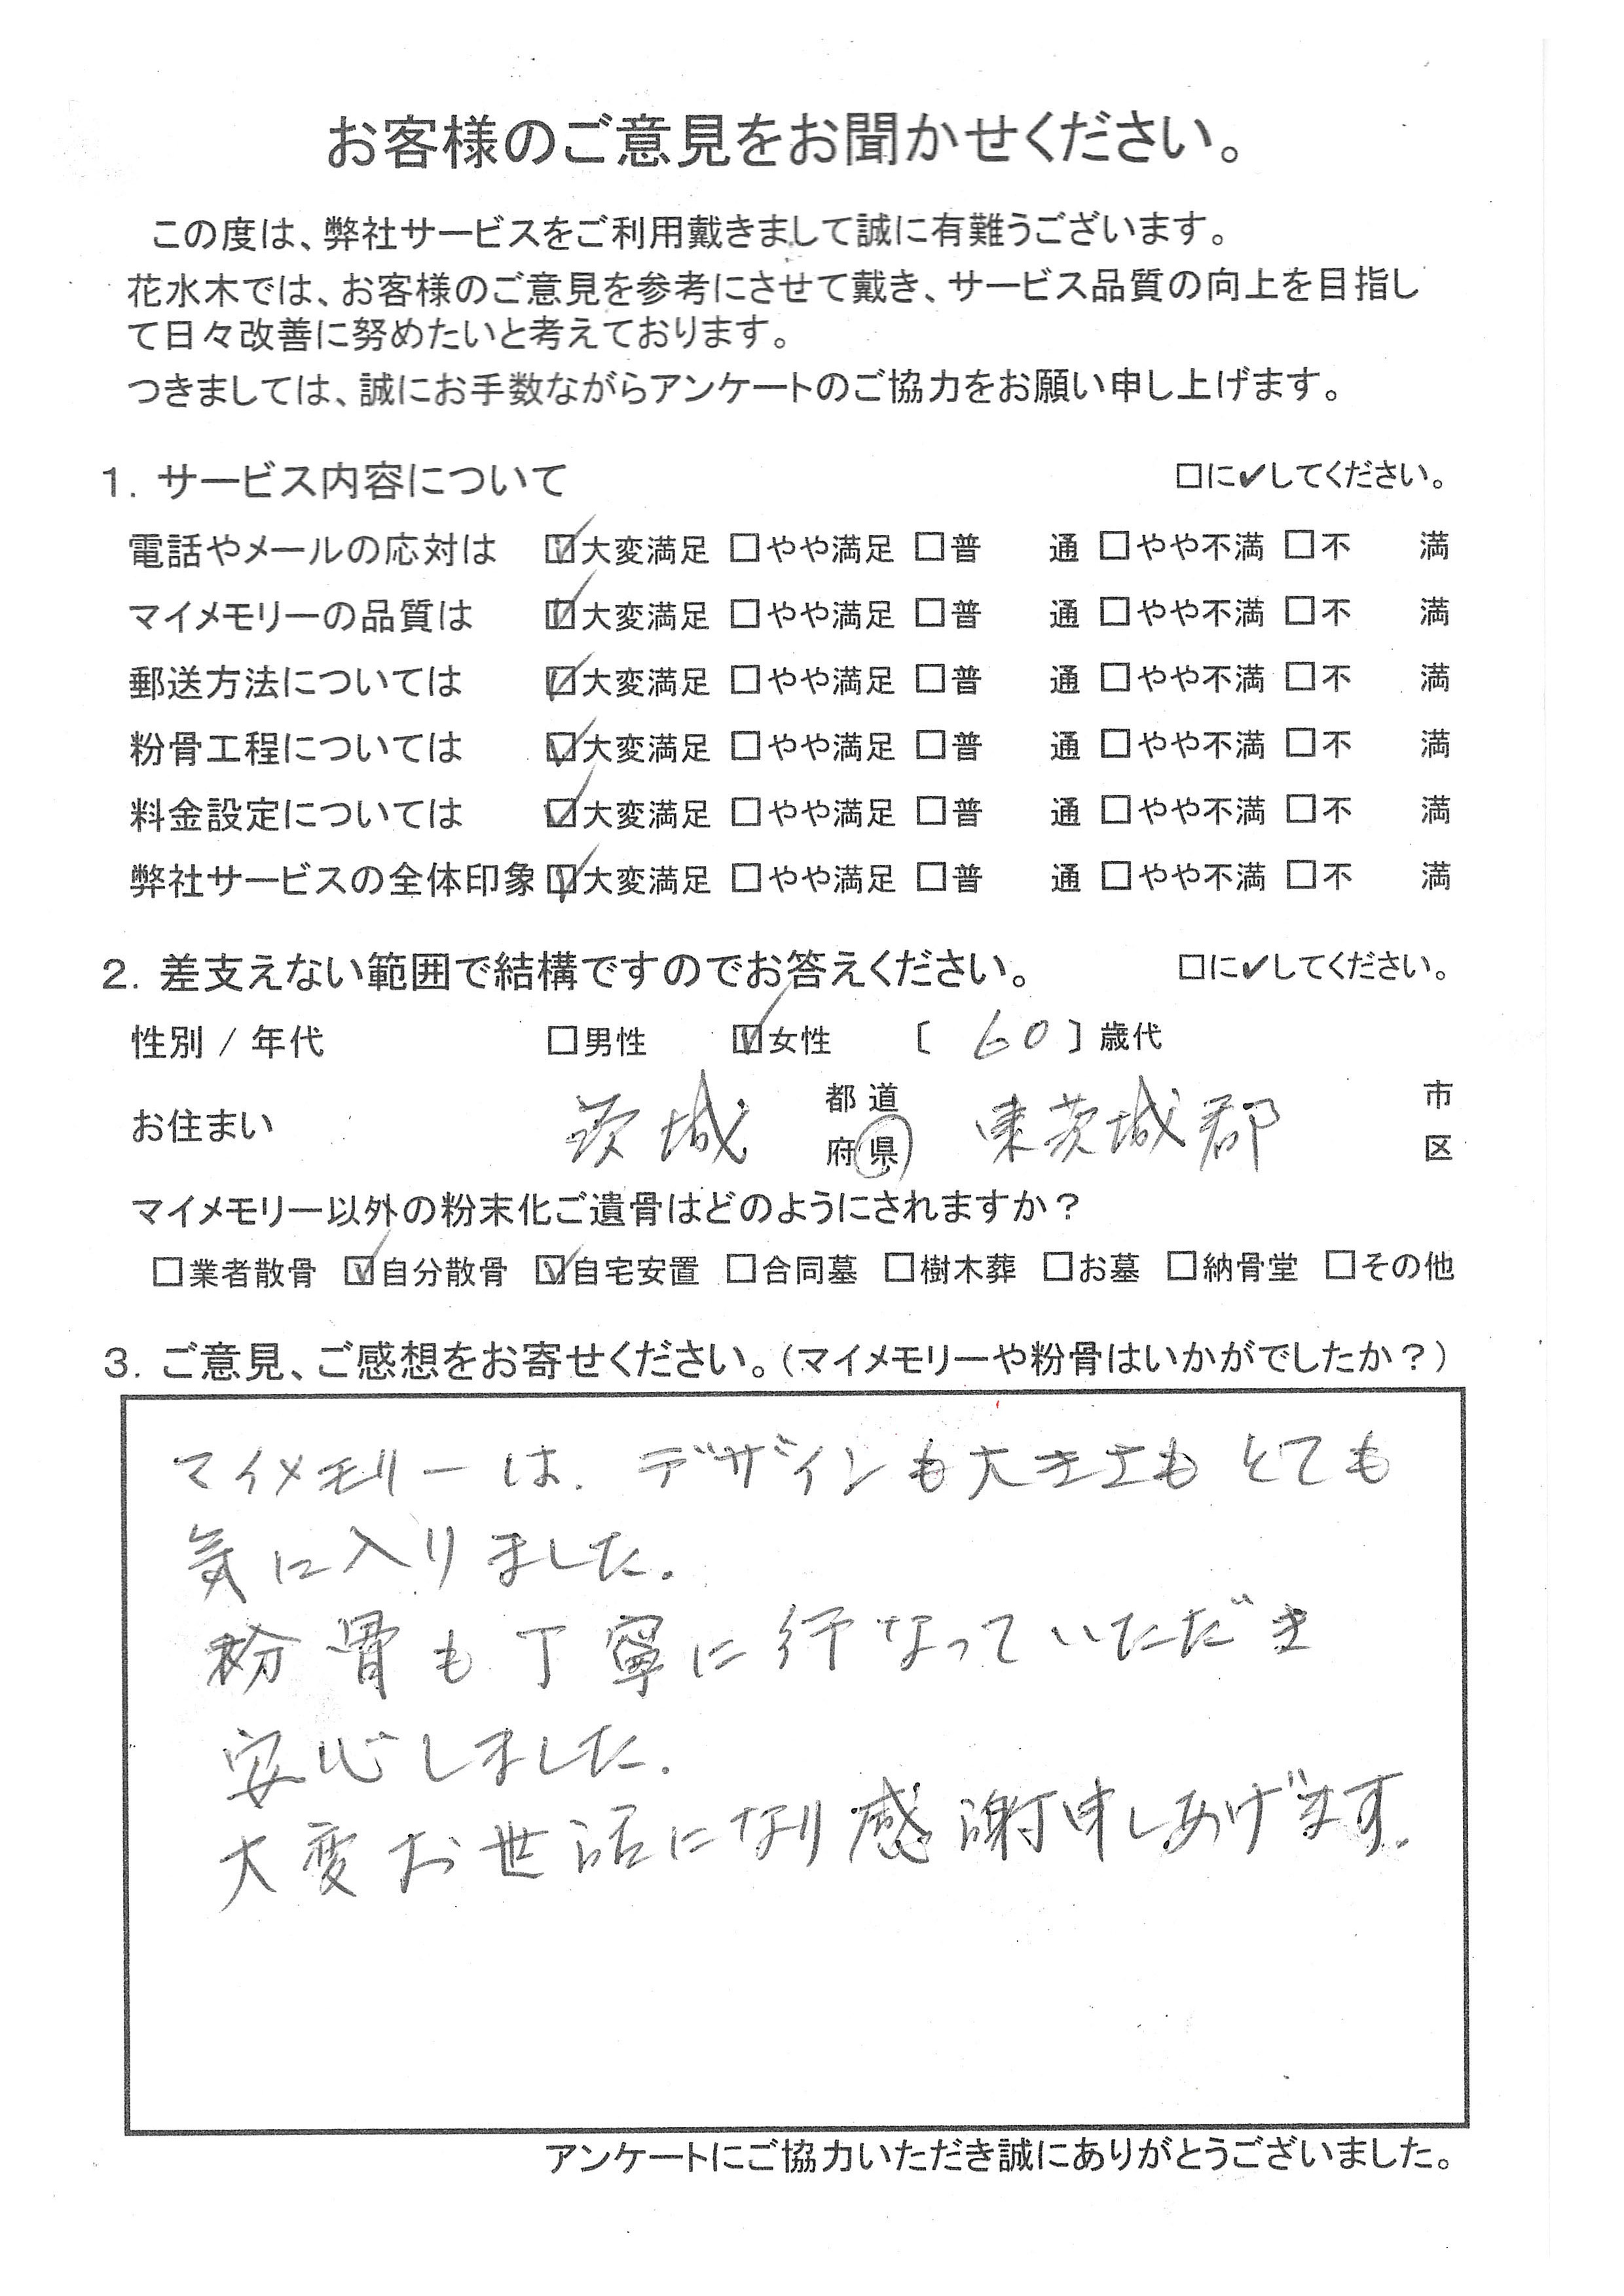 お客様のご意見をお聞かせください。
この度は、弊社サービスをご利用戴きまして誠に有難うございます。
花水木では、お客様のご意見を参考にさせて戴き、サービス品質の向上を目指し
て日々改善に努めたいと考えております。
つきましては、誠にお手数ながらアンケートのご協力をお願い申し上げます。
1. サービス内容について □に✔してください。
電話やメールの応対は ☑大変満足 □やや満足 □普 通 □やや不満 □不 満
マイメモリーの品質は ☑大変満足 □やや満足 □普 通 □やや不満 □不 満
郵送方法については ☑大変満足 □やや満足 □普 通 □やや不満 □不 満
粉骨工程については ☑大変満足 □やや満足 □普 通 □やや不満 □不 満
料金設定については ☑大変満足 □やや満足 □普 通 □やや不満 □不 満
弊社サービスの全体印象 ☑大変満足 □やや満足 □普 通 □やや不満 □不 満
2. 差支えない範囲で結構ですのでお答えください。 □に✔してください。
性別 / 年代 □男性 ☑女性 〔 60 〕歳代
お住まい 茨城 都道府県 東茨城郡 市区
マイメモリー以外の粉末化ご遺骨はどのようにされますか？
□業者散骨 ☑自分散骨 ☑自宅安置 □合同墓 □樹木葬 □お墓 □納骨堂 □その他
3. ご意見、ご感想をお寄せください。（マイメモリーや粉骨はいかがでしたか？）
マイメモリーは、デザインも大きさもとても
気に入りました。
粉骨も丁寧に行なっていただき
安心しました。
大変お世話になり感謝申しあげます。
アンケートにご協力いただき誠にありがとうございました。